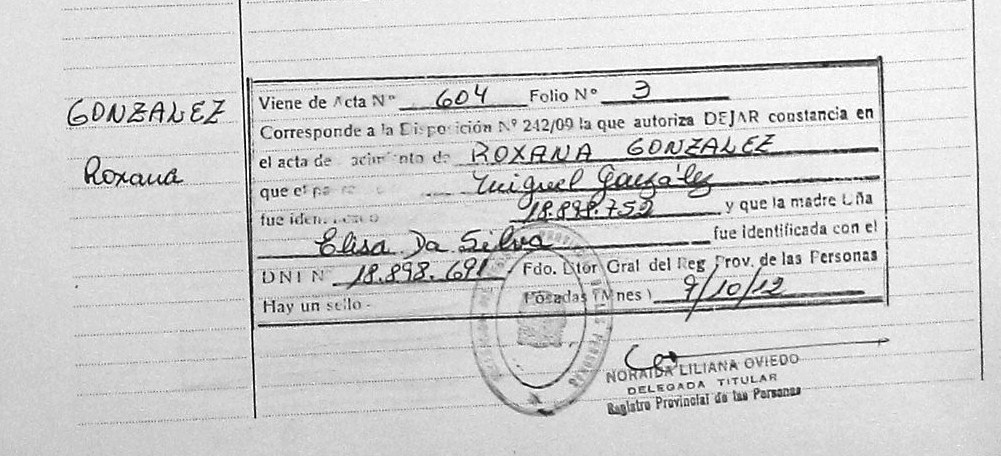 GONZALEZ
Roxana
Viene de Acta Nº 604 Folio Nº 3
Corresponde a la Disposición Nº 242/09 la que autoriza DEJAR constancia en
el acta de nacimiento de ROXANA GONZALEZ
que el Miguel González
fue 18.898.752 y que la madre
Elisa Da Silva fue identificada con el
DNI N 18.898.691 Fdo. Dtor Gral del Reg Prov. de las Personas
Hay un sello - Posadas (Mnes) 9/10/12
NORAIDA LILIANA OVIEDO
DELEGADA TITULAR
Registro Provincial de las Personas